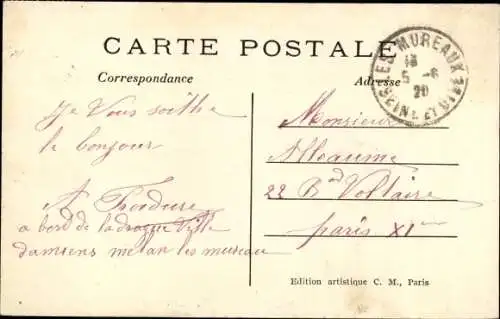 CARTE POSTALE
Correspondance
Adresse
LES MUREAUX
SEINE ET OISE
5 - 6
20
Je Vous soithe
le bonjour
a bord de la drague Ville
damiens melan les mureau
Monsieur
Alleaume
22 Bd Voltaire
paris XIème
Edition artistique C. M., Paris